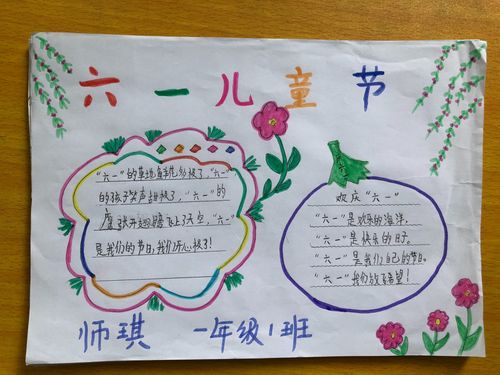 六一儿童节
"六一"的草地身毛多极了,"六一"
的孩子笑声甜极了,"六一"的
张开翅膀飞上了天空,"六一"
是我们的节日,我们开心极了!
欢庆"六一"
"六一"是欢乐的海洋,
"六一"是快乐的日子。
"六一"是我们自己的节日。
"六一"我们放飞希望!
师琪 一年级1班